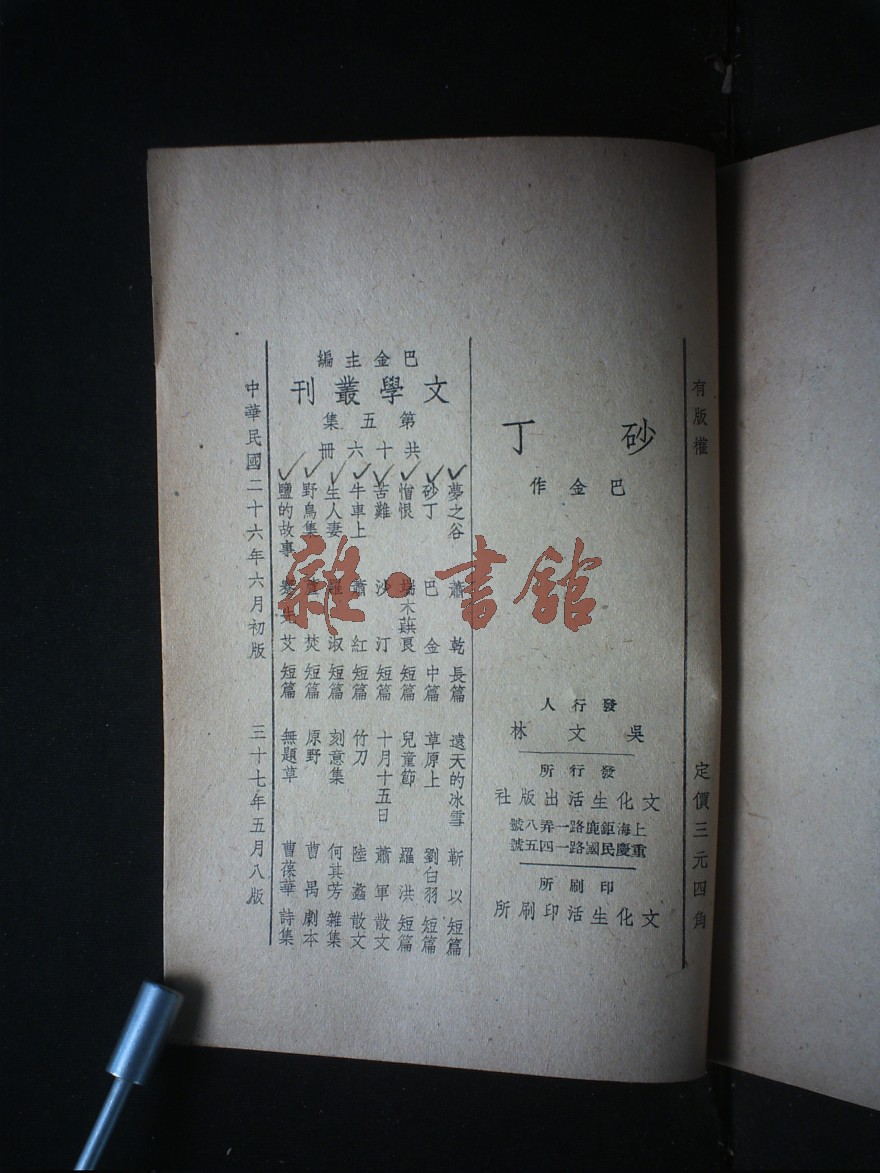 有版權
定價三元四角
砂丁
巴金作
發行人
吳文林
發行所
文化生活出版社
上海鉅鹿路一弄八號
重慶民國路一四五號
印刷所
文化生活印刷所
巴金主編
文學叢刊
第五集
共十六冊
夢之谷 蕭乾 長篇
砂丁 巴金 中篇
憎恨 端木蕻良 短篇
苦難 沙汀 短篇
牛車上 蕭紅 短篇
生人妻 羅淑 短篇
野鳥集 蘆焚 短篇
鹽的故事 蹇先艾 短篇
遠天的冰雪 靳以 短篇
草原上 劉白羽 短篇
兒童節 羅洪 短篇
十月十五日 蕭軍 散文
竹刀 陸蠡 散文
刻意集 何其芳 雜集
原野 曹禺 劇本
無題草 曹葆華 詩集
中華民國二十六年六月初版
三十七年五月八版
雜·書館